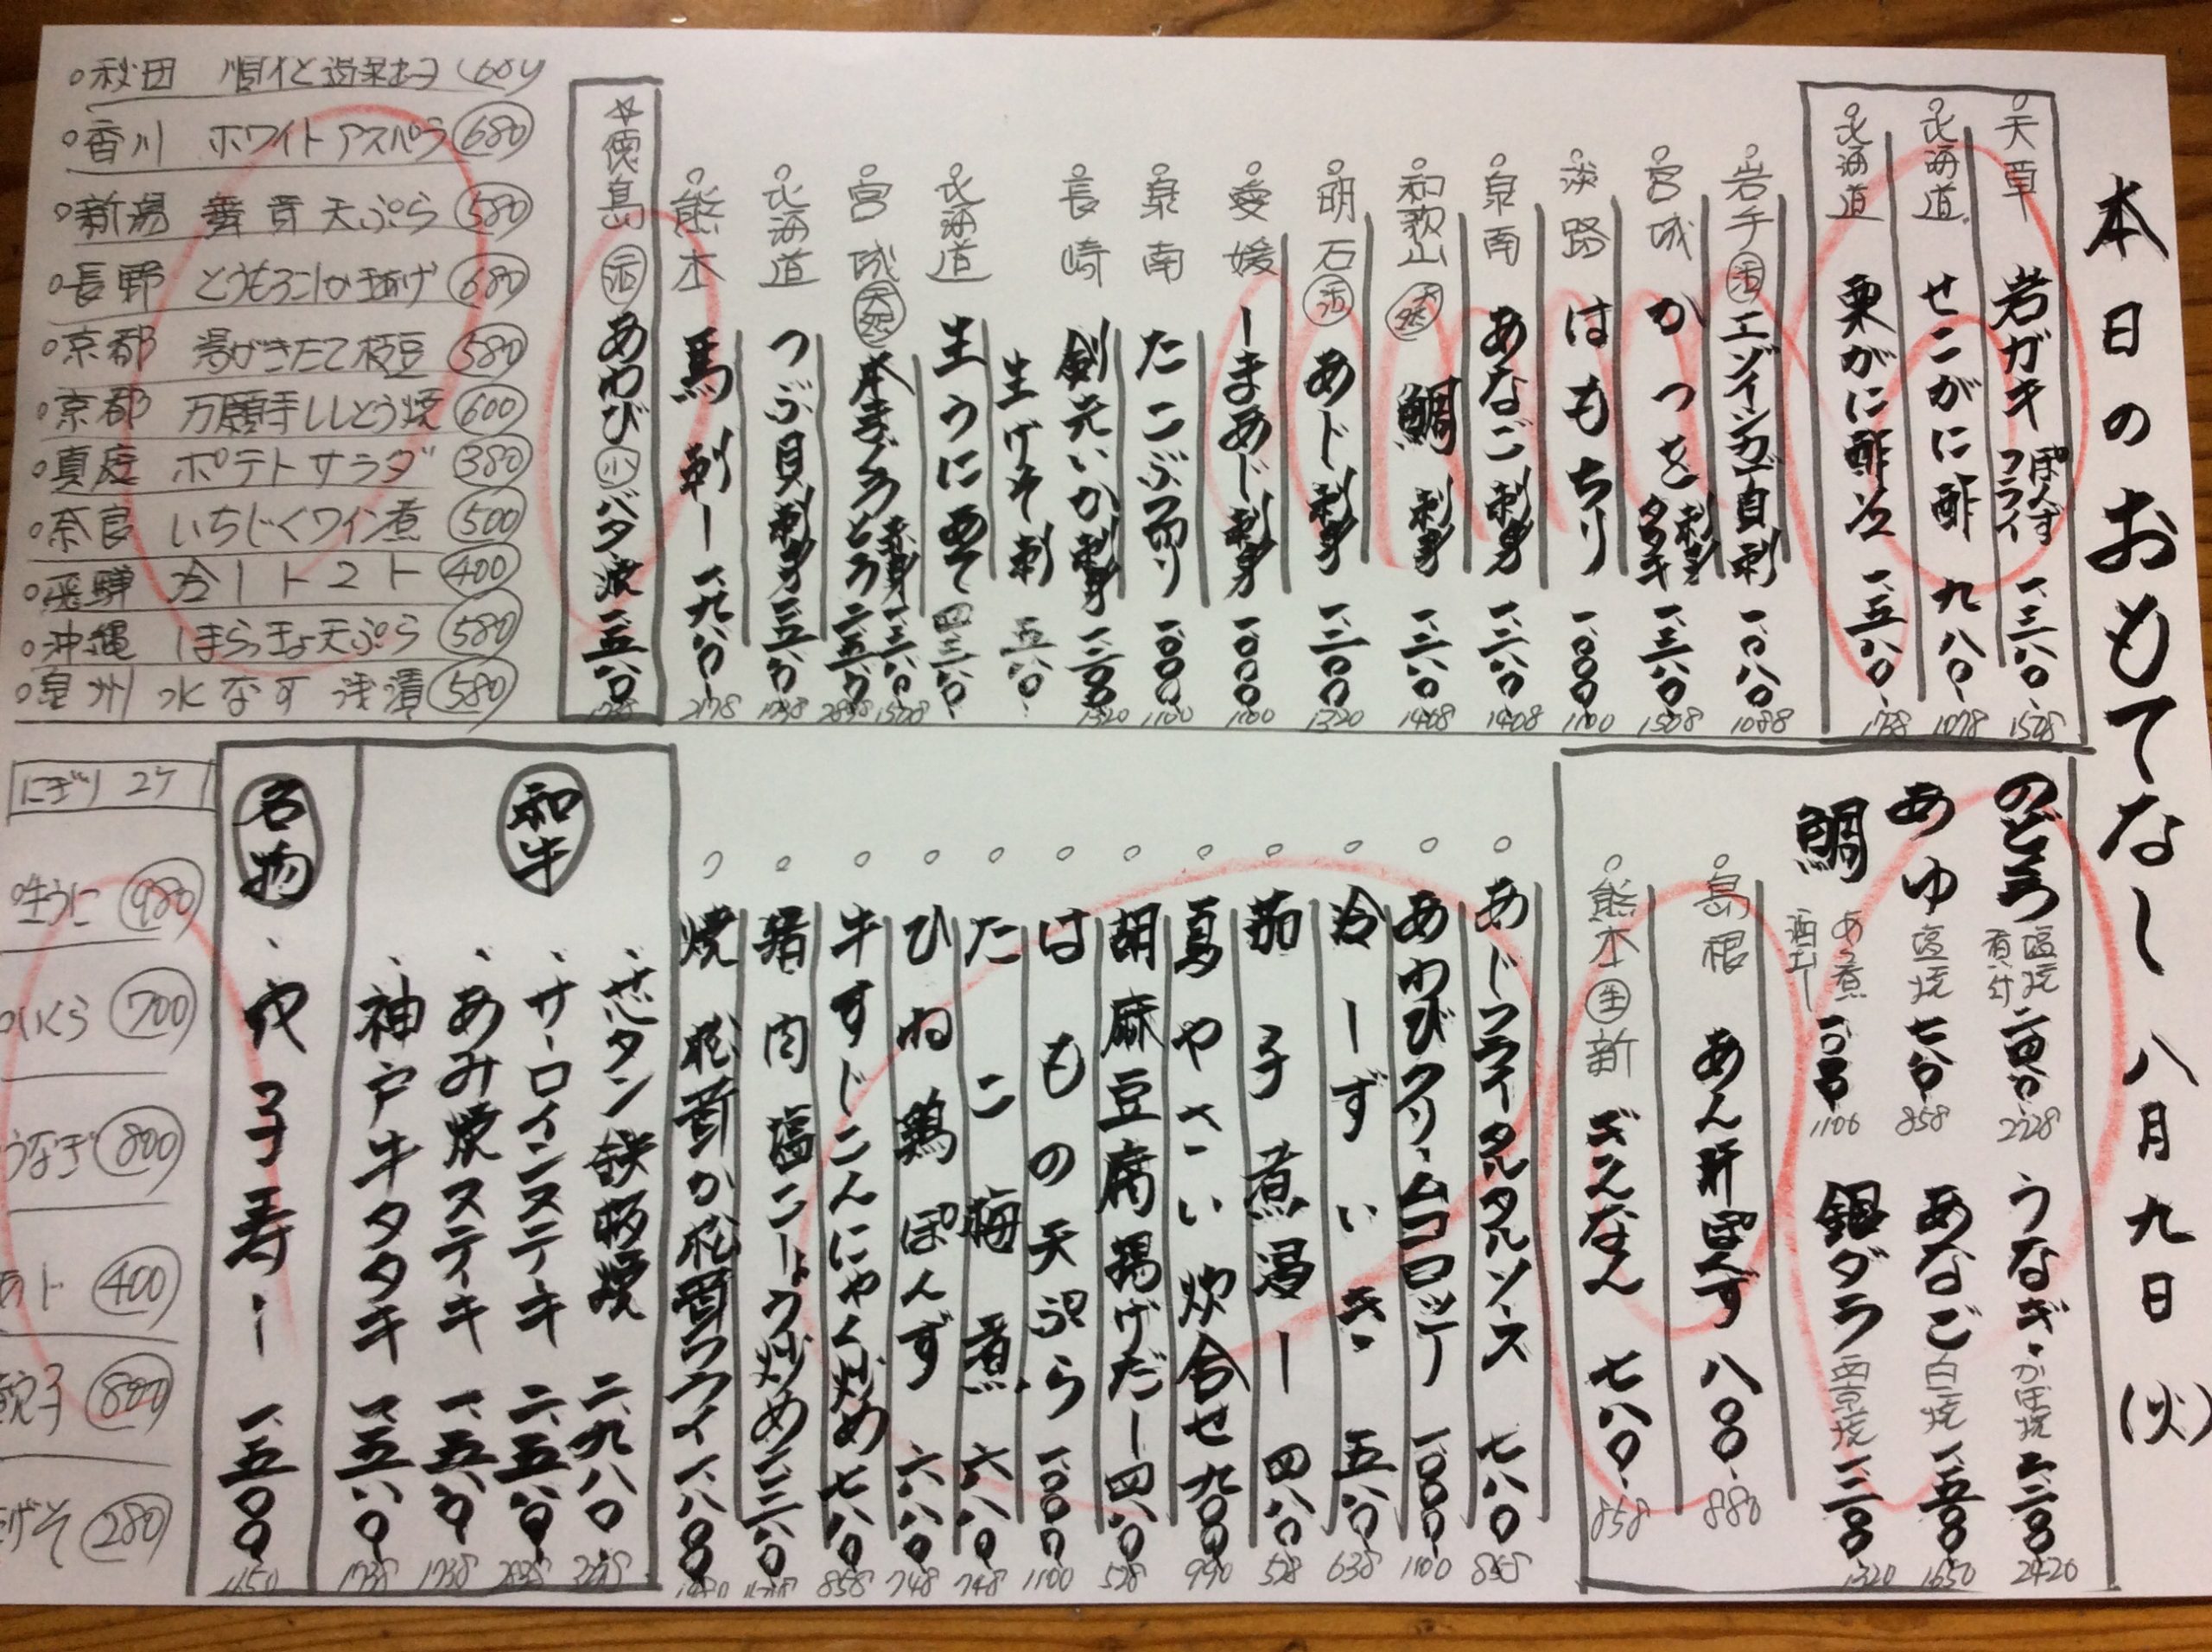 本日のおもてなし 八月九日(火)
天草 岩ガキ ぽんず フライ 一、三八〇 1518
北海道 せこがに酢 九八〇 1078
北海道 栗がに酢 一、五八〇 1738
岩手 活 エゾイシカゲ貝刺 一、〇八〇 1088
宮城 かつを 刺身 タタキ 一、三八〇 1518
淡路 はもちり 一、〇〇〇 1100
泉南 あなご 刺身 一、二八〇 1408
和歌山 天然 鯛 刺身 一、二八〇 1408
明石 活 あじ 刺身 一、二〇〇 1320
愛媛 しまあじ 刺身 一、〇〇〇 1100
泉南 たこぶつ切り 一、〇〇〇 1100
長崎 剣先いか 刺身 一、二〇〇 1320
生げそ刺 五八〇
北海道 生うに 四、三八〇
宮城 天然 本まぐろ 赤身 一、三八〇 1518 とろ 二、五八〇 2838
北海道 つぶ貝 刺身 一、五八〇 1738
熊本 馬刺し 一、九八〇 2178
☆徳島 活 あわび 小 バタ波 一、五八〇 1738
秋田 (680)
香川 ホワイトアスパラ 680
新潟 舞茸天ぷら 580
長野 とうもろこしかき揚げ 680
京都 湯がきたて枝豆 580
京都 万願寺ししとう焼 600
真庭 ポテトサラダ 380
奈良 いちじくワイン煮 500
飛騨 冷しトマト 400
沖縄 島らっきょ天ぷら 580
泉州 水なす 浅漬 580
のどぐろ 塩焼 煮付 2228
うなぎ かば焼 二、二〇〇 2420
あゆ 塩焼 七八〇 858
あなご 白焼 一、五〇〇 1650
鯛 あら煮 酒蒸し 1100
銀ダラ 西京焼 一、二〇〇 1320
島根 あん肝ぽんず 八〇〇 880
熊本 生 新 ぎんなん 七八〇 858
あじフライタルタルソース 七八〇 858
あわびクリームコロッケ 一、〇〇〇 1100
冷しずいき 五八〇 638
茄子煮浸し 四八〇 528
夏やさい炊合せ 九〇〇 990
胡麻豆腐揚げだし 四八〇 528
はもの天ぷら 一、〇〇〇 1100
たこ梅煮 六八〇 748
ひね鶏ぽんず 六八〇 748
牛すじこんにゃく炒め 七八〇 858
猪肉塩こしょう炒め
焼松茸か松茸フライ 一、八〇〇
和牛
、芯タン鉄板焼 二、九八〇
、サーロインステーキ 二、五八〇 2838
、あみ焼ステーキ 一、五八〇 1738
、神戸牛タタキ 一、五八〇 1738
名物
、穴子寿し 一、五〇〇
にぎり 2ケ
生うに 980
いくら 700
うなぎ 800
あじ 400
穴子 800
げそ 280